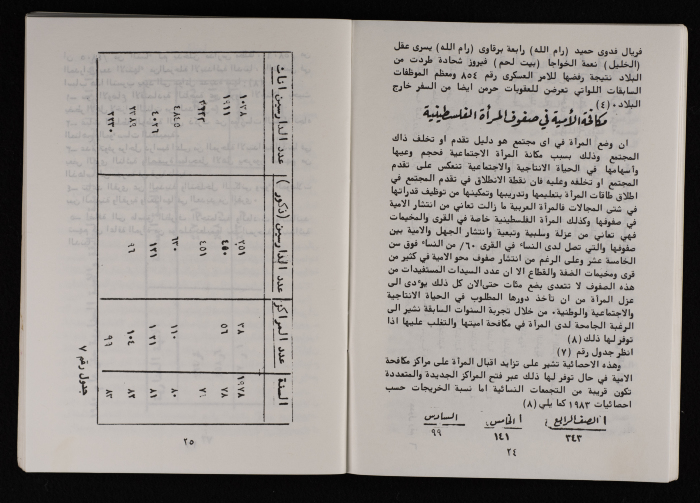 فريال فدوى حميد (رام الله) رابعة برقاوى (رام الله) يسرى عقل
(الخليل) نعمة الخواجا (بيت لحم) فيروز شحادة طردت من
البلاد نتيجة رفضها للامر العسكرى رقم ٨٥٤ ومعظم الموظفات
السابقات اللواتي تعرضن للعقوبات حرمن ايضا من السفر خارج
البلاد٠ (٤)
مكافحة الأمية في صفوف المرأة الفلسطينية
ان وضع المرأة في اى مجتمع هو دليل تقدم او تخلف ذاك
المجتمع وذلك بسبب مكانة المرأة الاجتماعية فحجم وعيها
واسهامها في الحياة الانتاجية والاجتماعية تنعكس على تقدم
المجتمع او تخلفه وعليه فان نقطة الانطلاق في تقدم المجتمع في
اطلاق طاقات المرأة بتعليمها وتدريبها وتمكينها من توظيف قدراتها
في شتى المجالات فالمرأة العربية ما زالت تعاني من انتشار الامية
في صفوفها وكذلك المرأة الفلسطينية خاصة في القرى والمخيمات
فهي تعاني من عزلة وسلبية وتبعية وانتشار الجهل والامية بين
صفوفها والتي تصل لدى النساء في القرى ٦٠٪ من النساء فوق سن
الخامسة عشر وعلى الرغم من انتشار صفوف محو الامية في كثير من
قرى ومخيمات الضفة والقطاع الا ان عدد السيدات المستفيدات من
هذه الصفوف لا تتعدى بضع مئات حتى الان كل ذلك يؤدى الى
عزل المرأة من ان تأخذ دورها المطلوب في الحياة الانتاجية
والاجتماعية والوطنية٠ من خلال تجربة السنوات السابقة نشير الى
الرغبة الجامحة لدى المرأة في مكافحة اميتها والتغلب عليها اذا
توفر لها ذلك (٨)
انظر جدول رقم (٧)
وهذه الاحصائية تشير على تزايد اقبال المرأة على مراكز مكافحة
الامية في حال توفر لها ذلك عبر فتح المراكز الجديدة والمتعددة
تكون قريبة من التجمعات النسائية اما نسبة الخريجات حسب
احصائيات ١٩٨٣ كما يلي (٨)
الصف الرابع الخامس السادس
٣٤٣ ١٤١ ٩٩
٢٤
جدول رقم ٧
السنة عدد المراكز عدد الدارسين (ذكور) عدد الدارسين اناث
١٩٧٨ ٣٨ ٣٥١ ١٠٧٨
٧٨ ٥٦ ٤٥٠ ١٩١١
٤٥١
٨٠ ١١٠ ٦٣٠ ٤٨٤٥
٨١ ١٢٦ ١٢١
٨٢ ١٠٤ ٦٦
٨٣ ٩٦
٢٥